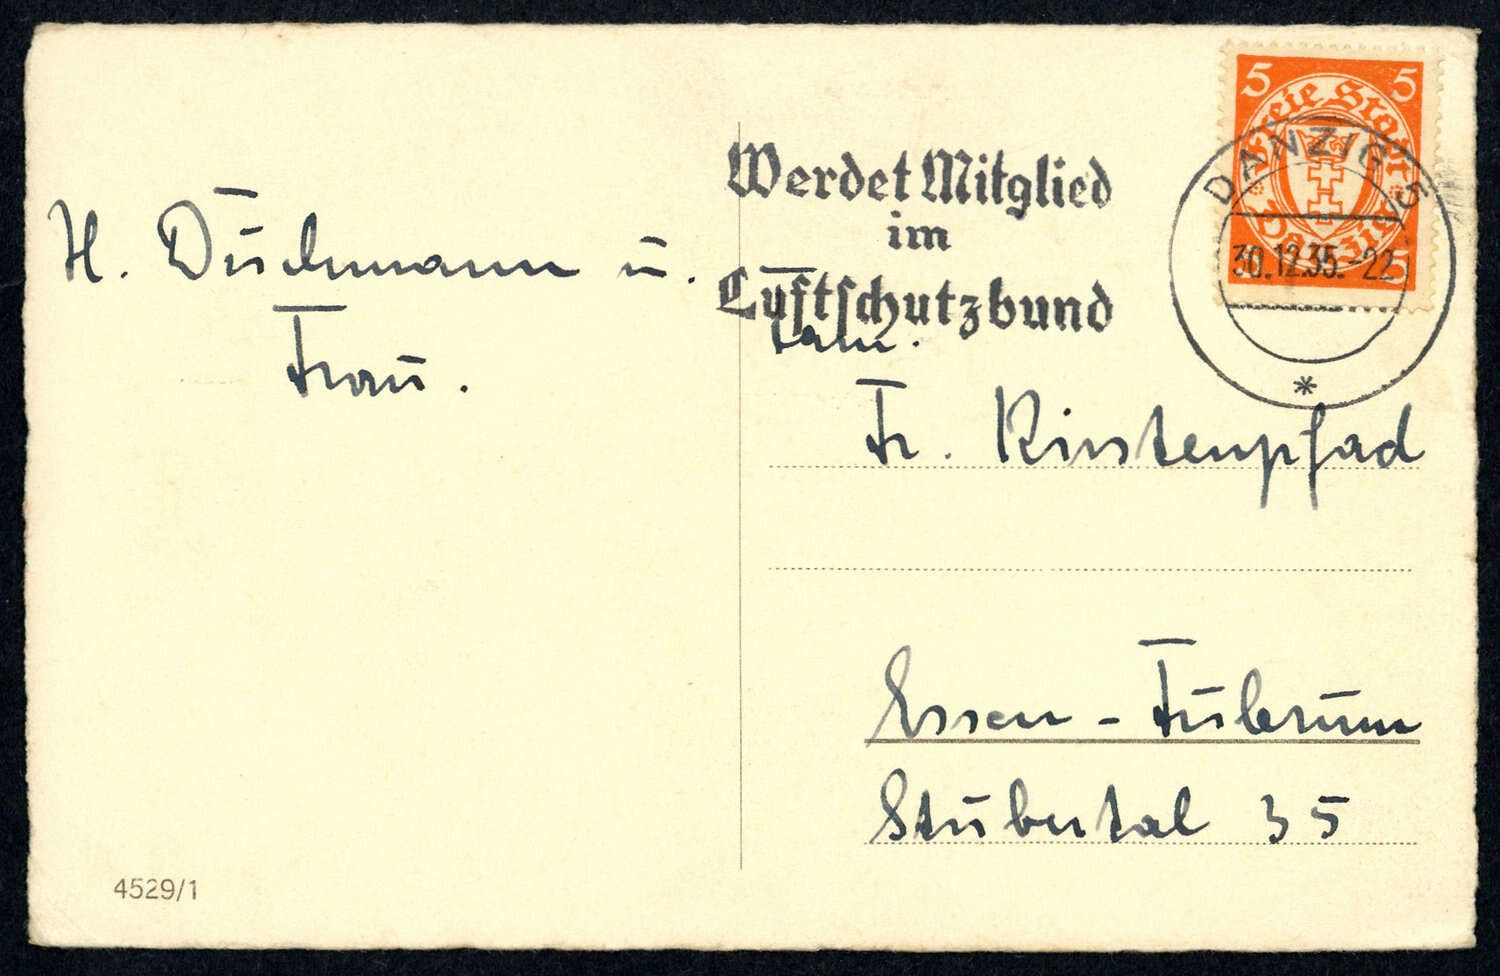 H. Duchmann u.
Frau.
4529/1
Werdet Mitglied
im
Luftschutzbund
5 5
Freie Stadt
Danzig
5
DANZIG 5
30.12.35.-22
*
Fam.
Fr. Kirstenpfad
Essen - Fulerum
Stubertal 35